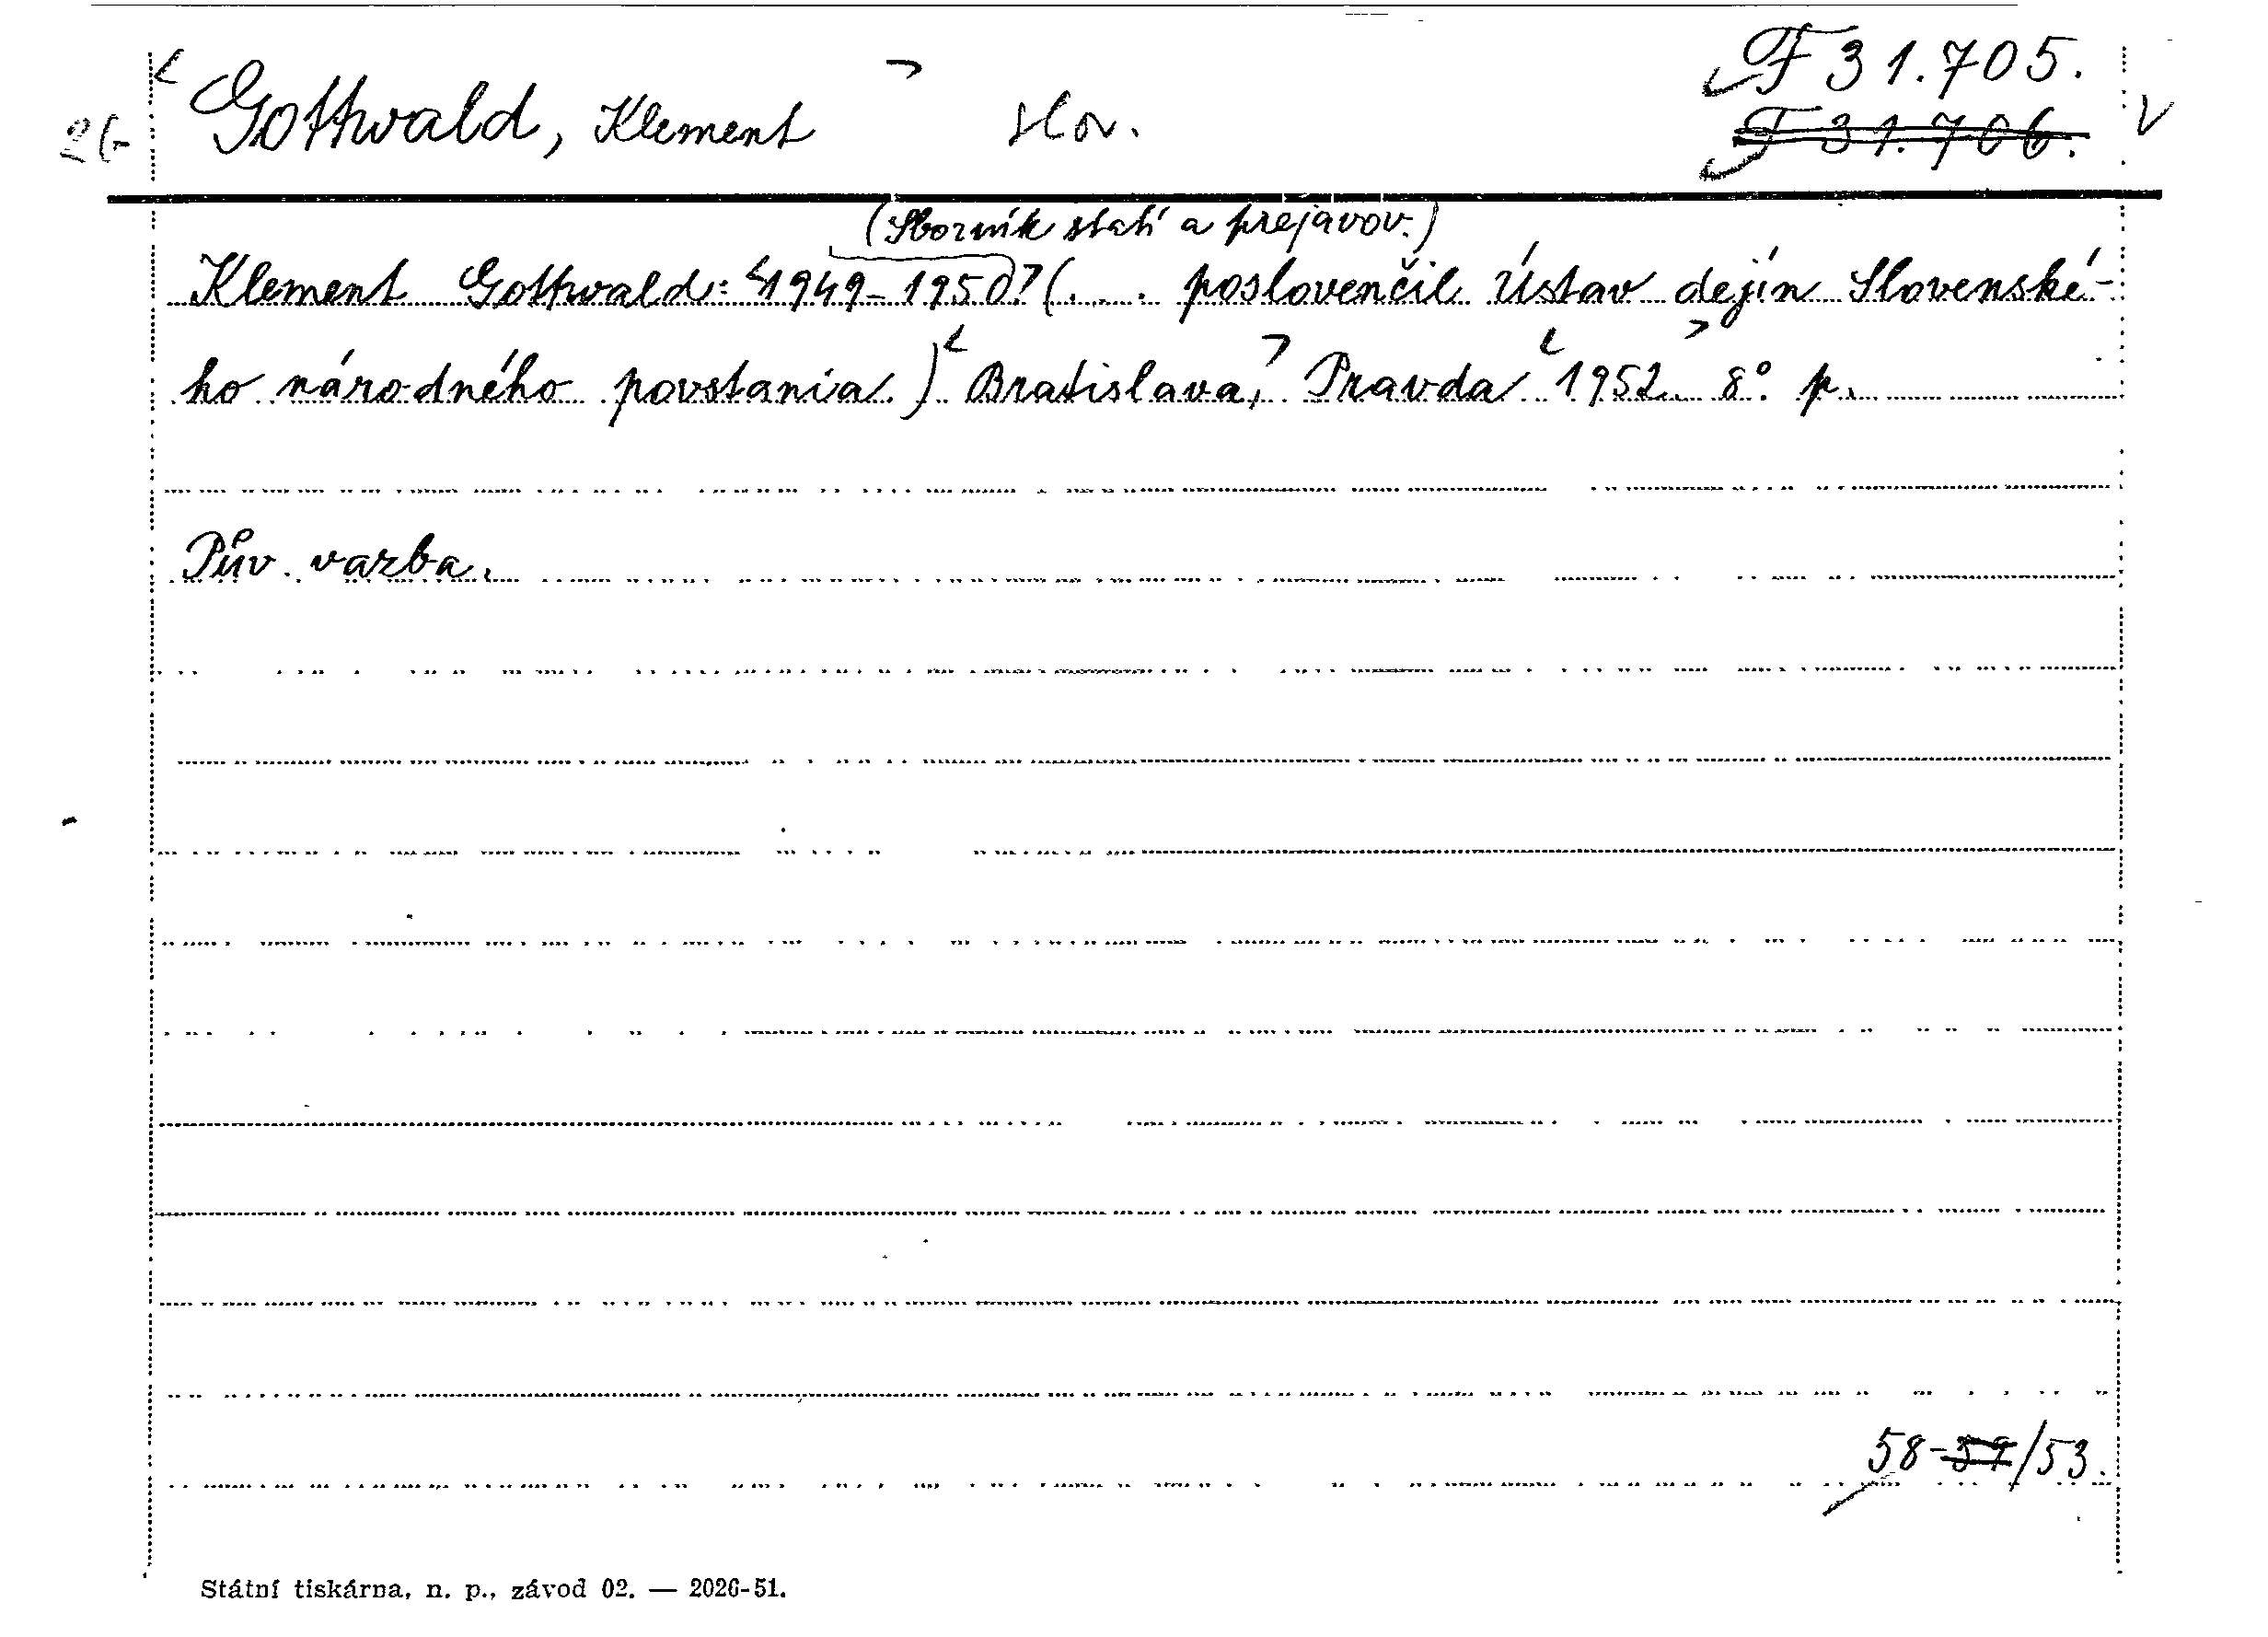 Gottwald, Klement slov. F 31.705.
F 31.706.
(Sborník statí a prejavov.)
Klement Gottwald: 1949-1950 (... poslovenčil Ústav dejín Slovenské-
ho národného povstania.) Bratislava, Pravda 1952. 8° p.
Pův. vazba.
58-59/53.
Státní tiskárna, n. p., závod 02. — 2026-51.